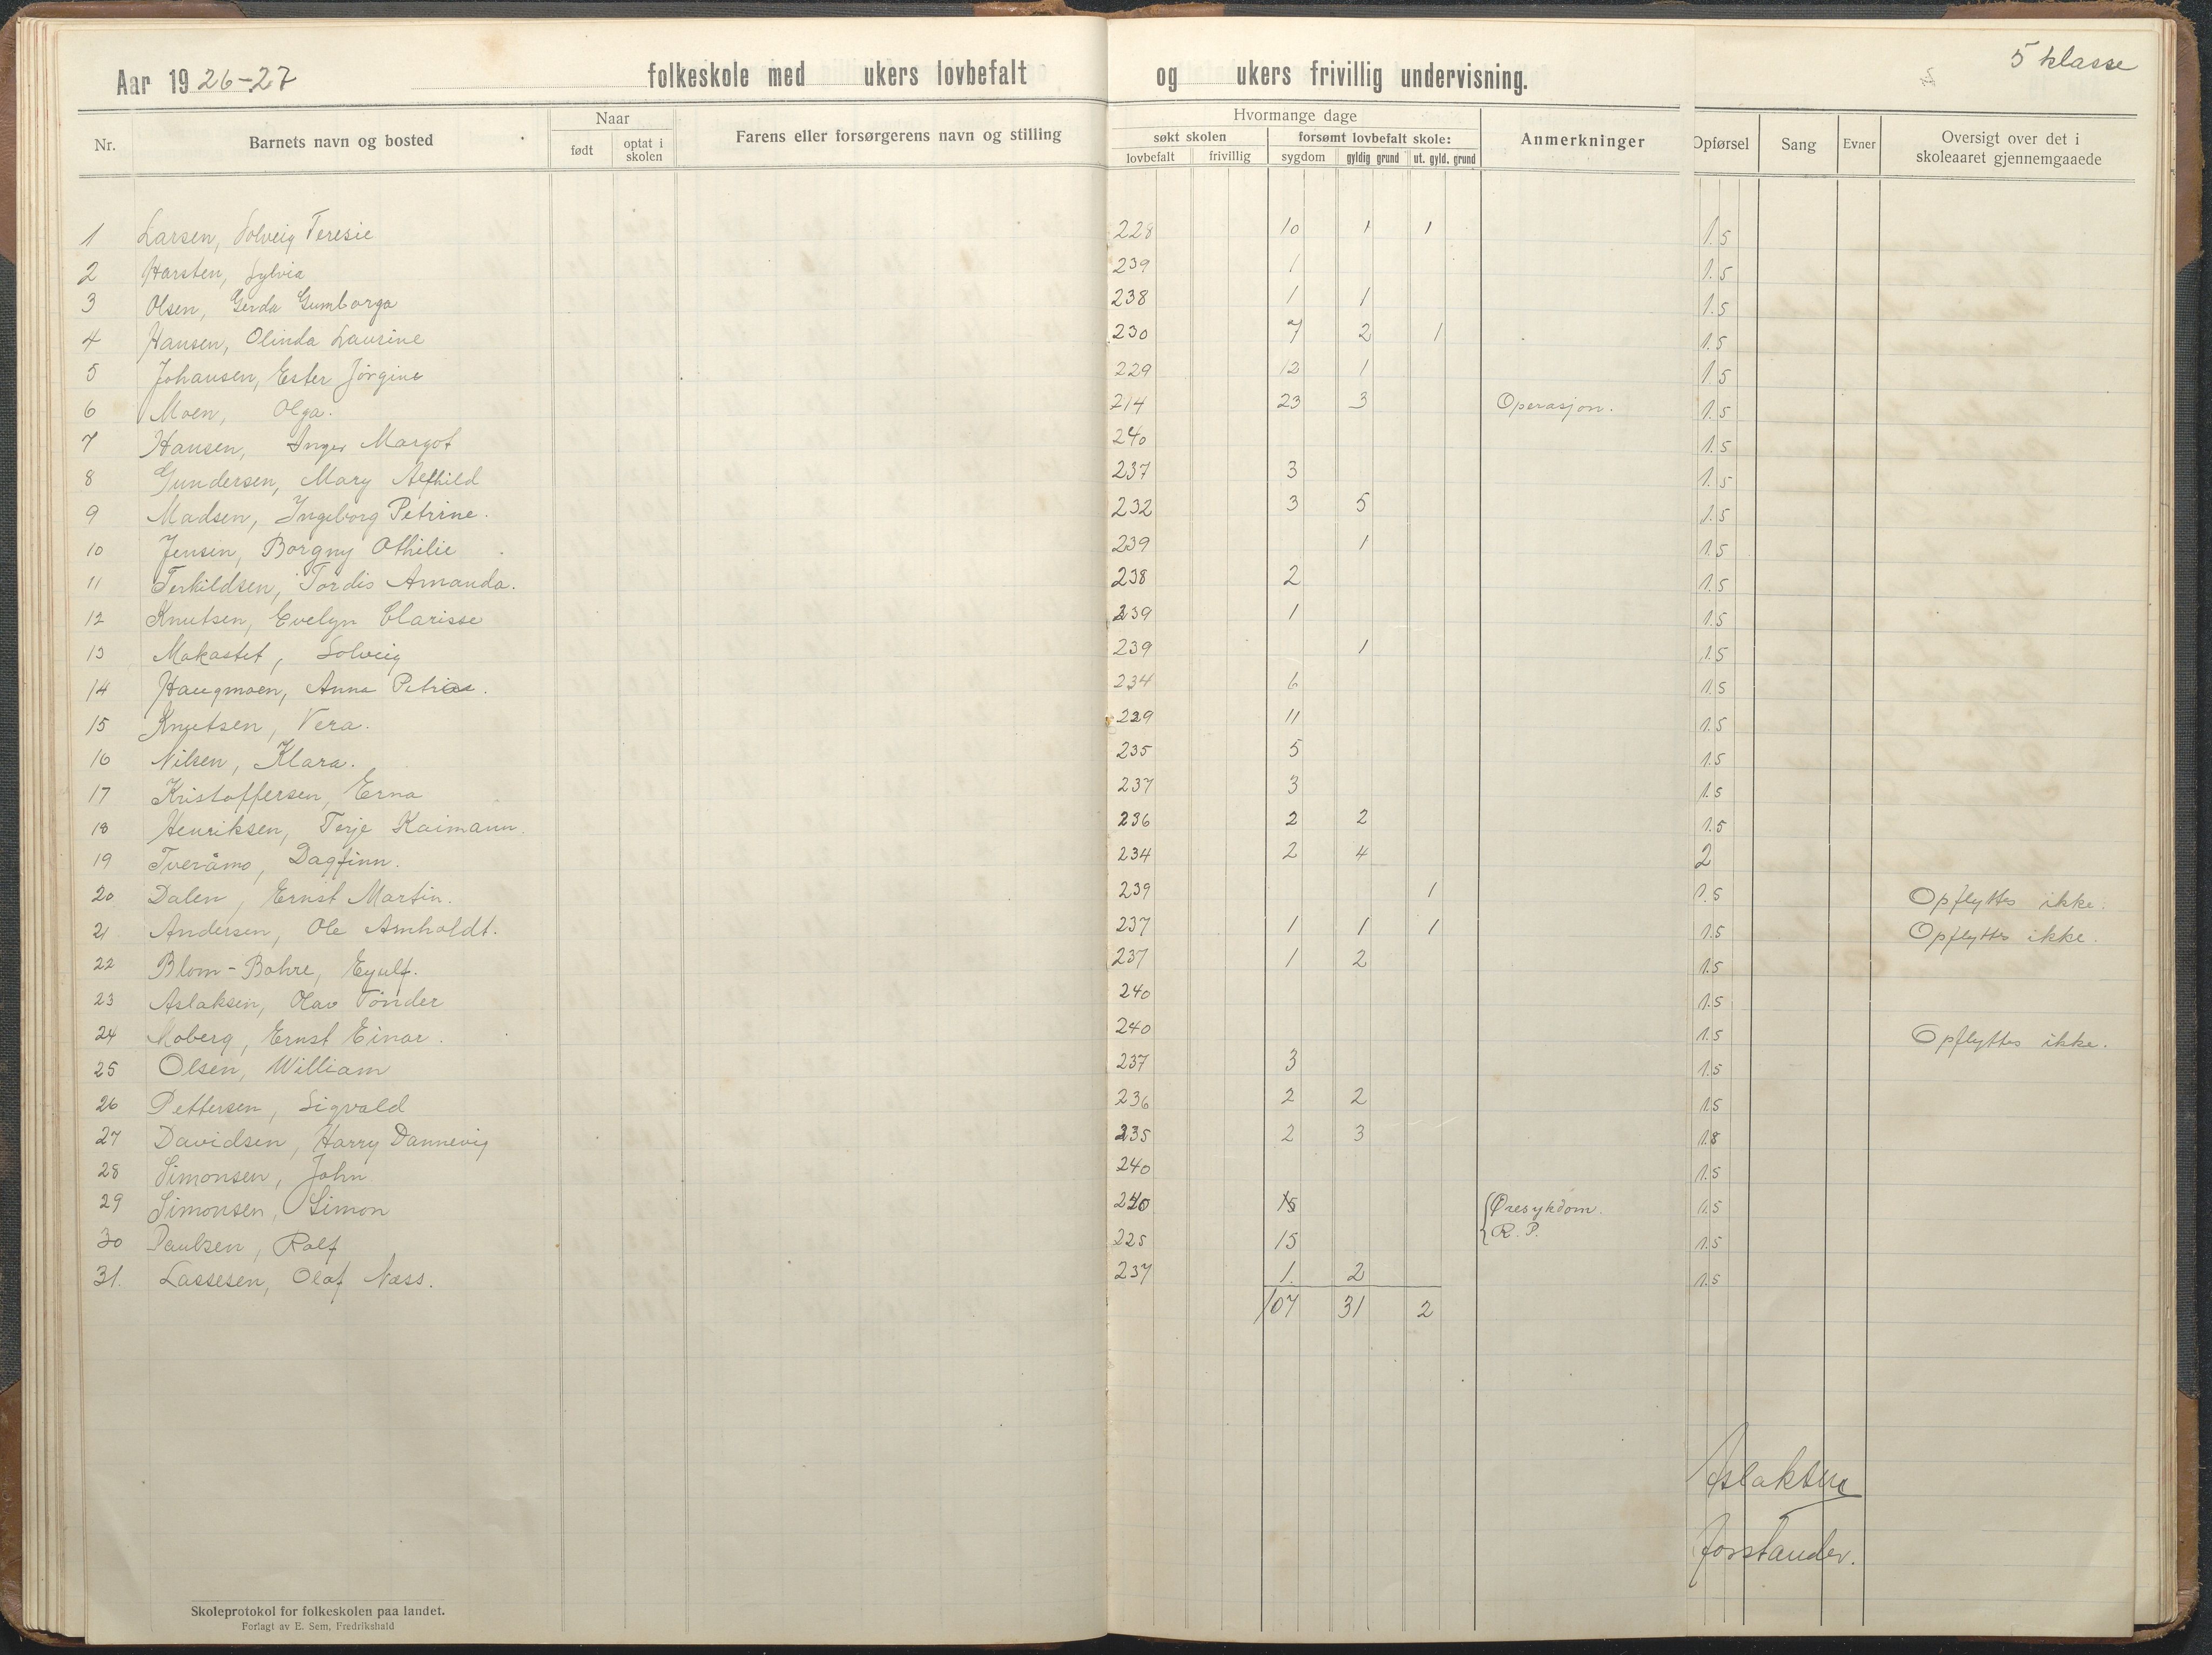 5 klasse
Aar 1926-27 folkeskole med ukers lovbefalt og ukers frivillig undervisning.
Nr. Barnets navn og bosted Naar født optat i skolen Farens eller forsørgerens navn og stilling Hvormange dage søkt skolen lovbefalt frivillig forsømt lovbefalt skole: sygdom gyldig grund ut. gyld. grund Anmerkninger Opførsel Sang Evner Oversigt over det i skoleaaret gjennemgaaede
1 Larsen, Solveig Teresie 228 10 1 1 1.5
2 Harsten, Sylvia 239 1 1.5
3 Olsen, Gerda Gumborga 238 1 1 1.5
4 Hansen, Olinda Laurine 230 7 2 1 1.5
5 Johansen, Ester Jørgine 229 12 1 1.5
6 Moen, Olga. 214 23 3 Operasjon. 1.5
7 Hansen, Inger Margot 240 1.5
8 Gundersen, Mary Alfhild 237 3 1.5
9 Madsen, Ingeborg Petrine. 232 3 5 1.5
10 Jensen, Borgny Othilie 239 1 1.5
11 Terkildsen, Tordis Amanda. 238 2 1.5
12 Knutsen, Evelyn Clarisse 239 1 1.5
13 Makastet, Solveig 239 1 1.5
14 Haugmoen, Anna Petrine. 234 6 1.5
15 Knutsen, Vera. 229 11 1.5
16 Nilsen, Klara. 235 5 1.5
17 Kristoffersen, Erna 237 3 1.5
18 Henriksen, Terje Kaimann. 236 2 2 1.5
19 Tveråmo, Dagfinn. 234 2 4 2
20 Dalen, Ernst Martin. 239 1 1.5 Opflyttes ikke.
21 Andersen, Ole Arnholdt. 237 1 1 1 1.5 Opflyttes ikke.
22 Blom-Bahre, Eyulf. 237 1 2 1.5
23 Aslaksen, Olav Tönder 240 1.5
24 Moberg, Ernst Einar. 240 1.5 Opflyttes ikke.
25 Olsen, William 237 3 1.5
26 Pettersen, Sigvald 236 2 2 1.5
27 Davidsen, Harry Dannevig 235 2 3 1.8
28 Simonsen, John 240 1.5
29 Simonsen, Simon 240 15 Øresykdom. 1.5
30 Paulsen, Rolf 225 15 R. P. 1.5
31. Lassesen, Olaf Næss. 237 1. 2 1.5
107 31 2
Aslaksen
forstander.
Skoleprotokol for folkeskolen paa landet.
Forlagt av E. Sem, Fredrikshald